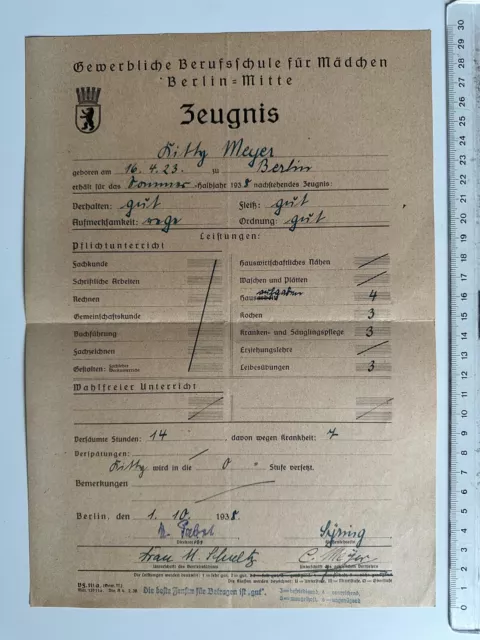 Gewerbliche Berufsschule für Mädchen
Berlin=Mitte
Zeugnis
Kitty Meyer
geboren am 16.4.23. zu Berlin
erhält für das Sommer-Halbjahr 1938 nachstehendes Zeugnis:
Verhalten: gut Fleiß: gut
Aufmerksamkeit: rege Ordnung: gut
Leistungen:
Pflichtunterricht
Fachkunde Hauswirtschaftliches Nähen
Schriftliche Arbeiten Waschen und Plätten
Rechnen Haus 4
Gemeinschaftskunde Kochen 3
Buchführung Kranken- und Säuglingspflege 3
Fachzeichnen Erziehungslehre
Gestalten: Leibesübungen 3
Wahlfreier Unterricht
Versäumte Stunden: 14, davon wegen Krankheit: 7
Verspätungen:
Kitty wird in die 0 Stufe versetzt.
Bemerkungen
Berlin, den 1. 10. 1938.
Frau M. Schultz C. Meyer
Die beste Zensur für Betragen ist „gut".
0 1 2 3 4 5 6 7 8 9 10 11 12 13 14 15 16 17 18 19 20 21 22 23 24 25 26 27 28 29 30